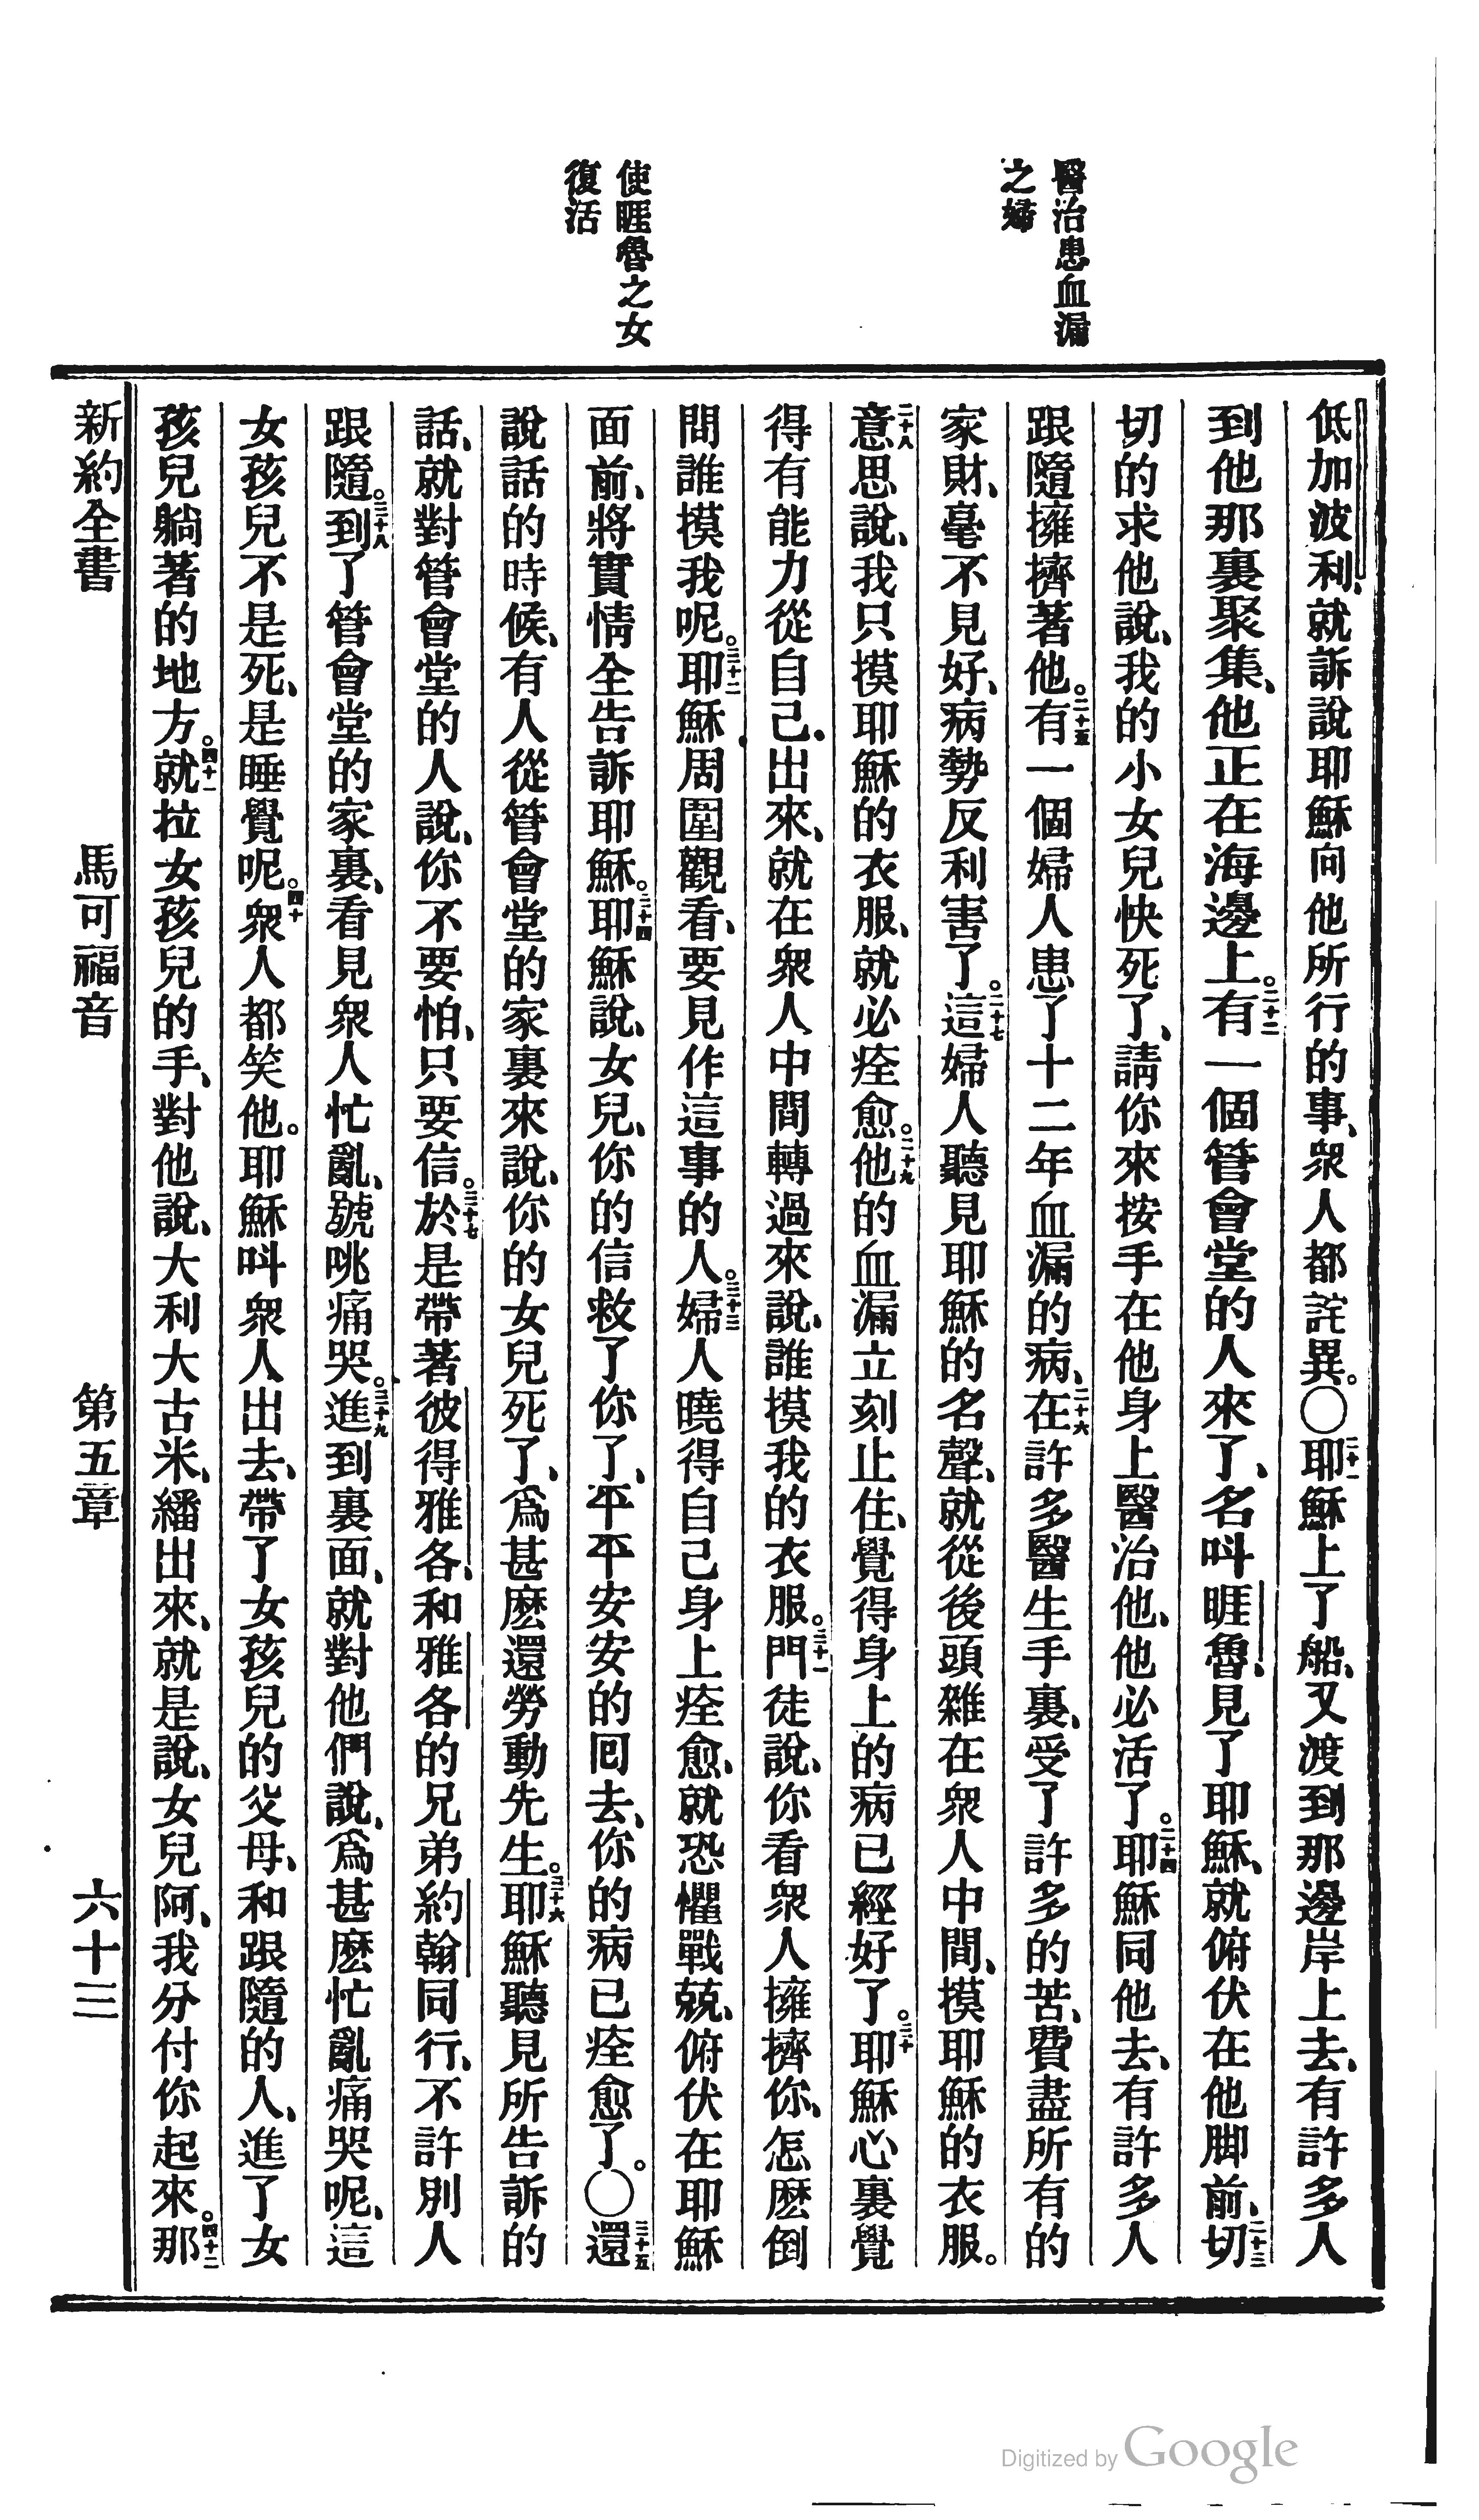 醫治患血漏
之婦
使睚魯之女
復活
低加波利、就訴說耶穌向他所行的事、衆人都詫異。〇二十一耶穌上了船、又渡到那邊岸上去、有許多人
到他那裏聚集、他正在海邊上。二十二有一個管會堂的人來了、名呌睚魯、見了耶穌、就俯伏在他脚前、二十三切
切的求他說、我的小女兒快死了、請你來按手在他身上醫治他、他必活了。二十四耶穌同他去、有許多人
跟隨擁擠著他。二十五有一個婦人患了十二年血漏的病、二十六在許多醫生手裏、受了許多的苦、費盡所有的
家財、毫不見好、病勢反利害了。二十七這婦人聽見耶穌的名聲、就從後頭雜在衆人中間、摸耶穌的衣服。
二十八意思說、我只摸耶穌的衣服、就必痊愈。二十九他的血漏立刻止住、覺得身上的病已經好了。三十耶穌心裏覺
得有能力從自己出來、就在衆人中間轉過來說、誰摸我的衣服。三十一門徒說、你看衆人擁擠你、怎麽倒
問誰摸我呢。三十二耶穌周圍觀看、要見作這事的人。三十三婦人曉得自己身上痊愈、就恐懼戰兢、俯伏在耶穌
面前、將實情全告訴耶穌。三十四耶穌說、女兒、你的信救了你了、平平安安的囘去、你的病已痊愈了。〇三十五還
說話的時候、有人從管會堂的家裏來說、你的女兒死了、爲甚麽還勞動先生。三十六耶穌聽見所告訴的
話、就對管會堂的人說、你不要怕、只要信。三十七於是帶著彼得、雅各、和雅各的兄弟約翰同行、不許別人
跟隨。三十八到了管會堂的家裏、看見衆人忙亂、號咷痛哭。三十九進到裏面、就對他們說、爲甚麽忙亂痛哭呢、這
女孩兒不是死、是睡覺呢。四十衆人都笑他。耶穌呌衆人出去、帶了女孩兒的父母、和跟隨的人、進了女
孩兒躺著的地方。四十一就拉女孩兒的手、對他說、大利大古米、繙出來、就是說、女兒阿、我分付你起來。四十二那
新約全書　馬可福音　第五章　六十三
Digitized by Google